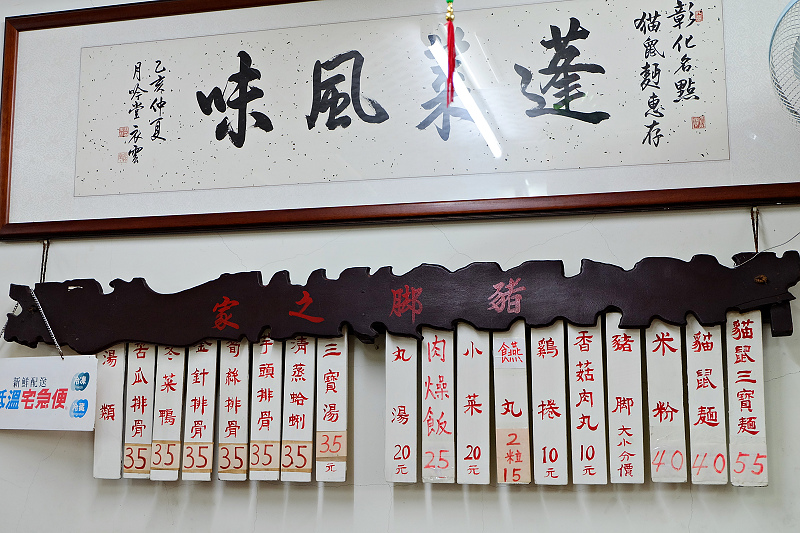 彰化名點
猫鼠麵惠存
蓬萊風味
乙亥仲夏
月吟堂衣雲
豬脚之家
貓鼠三寶麵 55
貓鼠麵 40
米粉 40
豬脚 大小分價
香菇肉丸 10元
鷄捲 10元
燕丸 2粒15
小菜 20元
肉燥飯 25
丸湯 20元
三寶湯 35元
清蒸蛤蜊 35
芋頭排骨 35
筍絲排骨 35
金針排骨 35
冬菜鴨 35
苦瓜排骨 35
湯類
新鮮配送
低溫宅急便
冷凍
冷藏